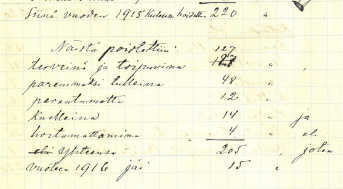 Siinä vuoden 1915 kuluessa hoidettu 220 "
Näistä poistettiin: 127
terveinä ja toipuvina 127 "
paremmaksi tulleina 48 "
parantumatta 12 "
Kuolleina 14 " ja
hoitamattomina 4 " eli
Yhteensä 205 " joten
vuoteen 1916 jäi 15 "